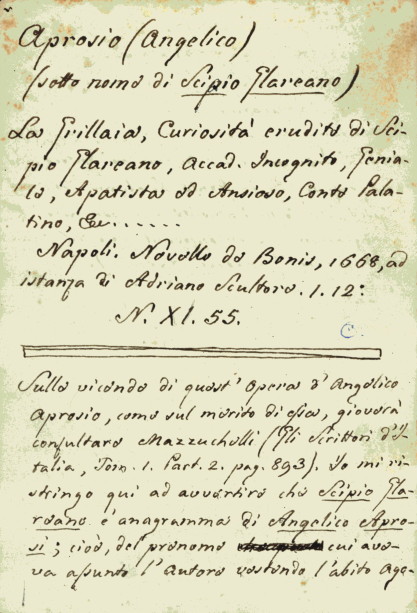 Aprosio (Angelico)
(sotto nome di Scipio Glareano)
La Grillaia, Curiosità erudite di Sci-
pio Glareano, Accad. Incognito, Genia-
le, Apatista ed Ansioso, Conte Pala-
tino, &c......
Napoli. Novello de Bonis, 1668, ad
istanza di Adriano Scultore. 1. 12:
N. XI. 55.
C.
Sulle vicende di quest' opera d' Angelico
Aprosio, come sul merito di essa, gioverà
consultare Mazzuchelli (Gli Scrittori d'I-
talia, Tom. 1. Part. 2. pag. 893). Io mi ri-
stringo qui ad avvertire che Scipio Gla-
reano é anagramma di Angelico Apro-
si; cioè, del prenome cui ave-
va assunto l' Autore vestendo l' abito Ago-